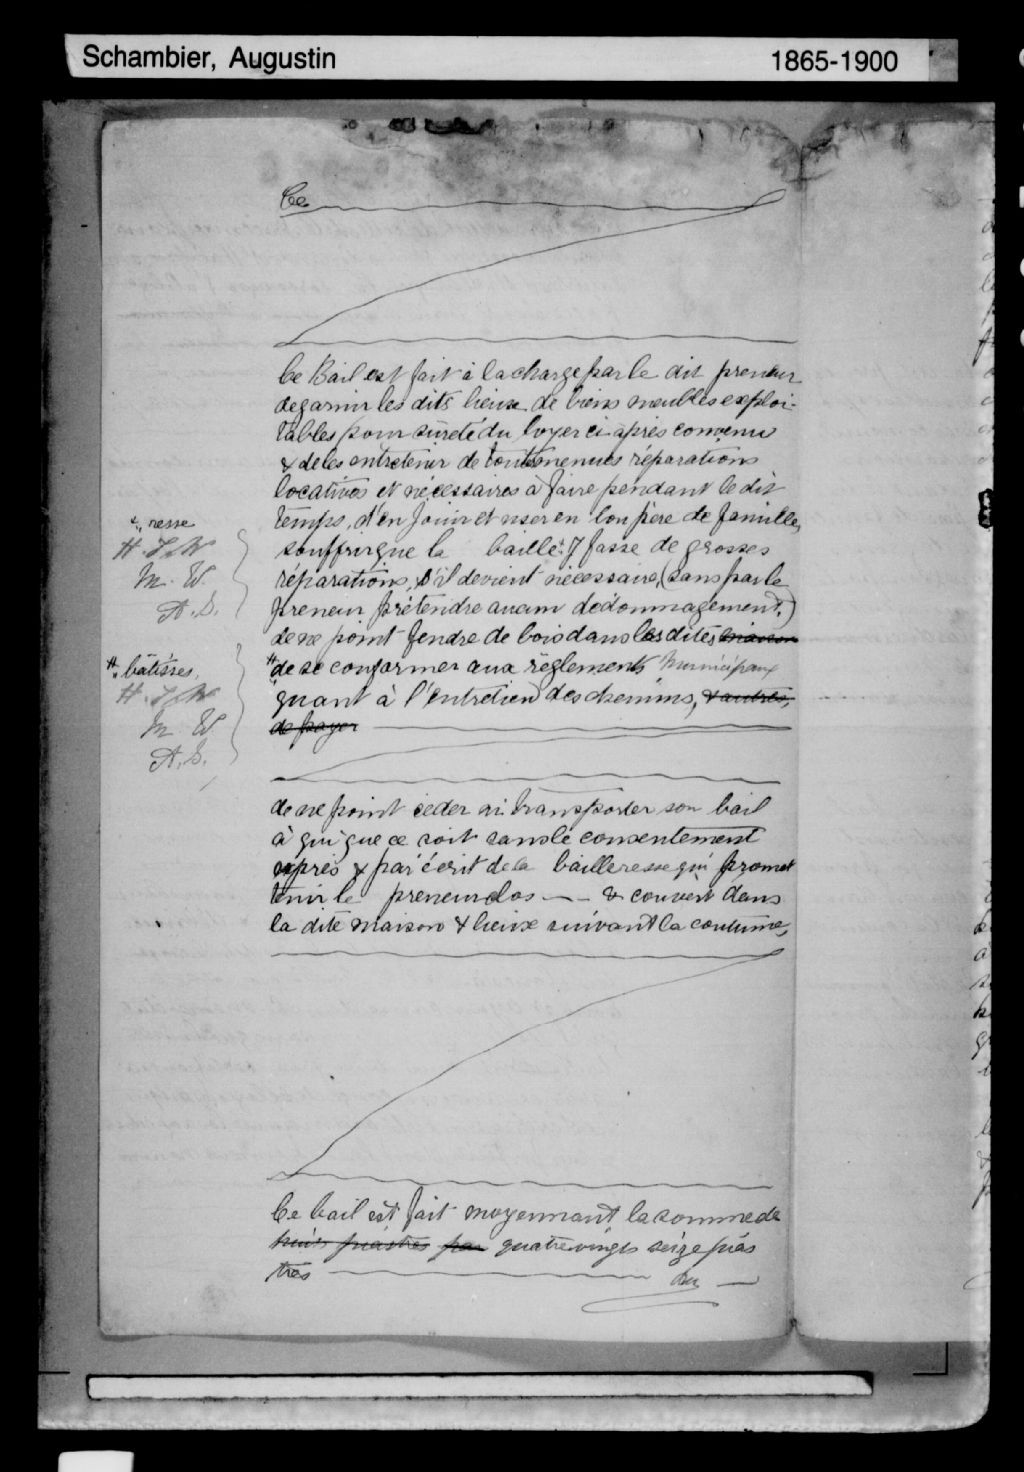 Schambier, Augustin
1865-1900
Ce
Ce Bail est fait à la charge par le dit preneur
de garnir les dits lieux de biens meubles exploi-
tables pour sûreté du loyer ci-après convenu
& de les entretenir de toutes menues réparations
locatives et nécessaires à faire pendant le dit
temps, d'en jouir et user en bon père de famille,
resse
H. J. W
M. W.
A. S.
souffrir que la baille. y fasse de grosses
réparations, s'il devient nécessaire, (sans par le
preneur prétendre aucun dédommagement,)
de ne point fendre de bois dans les dites maison
# bâtisses,
H. J. W
M W
A. S.
# de se conformer aux règlements municipaux
quant à l'entretien des chemins, & autres,
de payer
de ne point céder ni transporter son bail
à qui que ce soit sans le consentement
exprès & par écrit de la bailleresse qui promet
tenir le preneur clos & couvert dans
la dite maison & lieux suivant la coutume,
Ce bail est fait moyennant la somme de
huit piastres par quatrevingts seize pias
tres